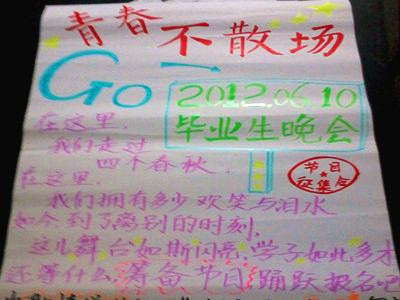 青春不散场
Go
2012.06.10
毕业生晚会
在这里.
我们走过
四个春秋.
节目
征集令
在这里.
我们拥有多少欢笑与泪水
如今到了离别的时刻.
这儿舞台如斯闪亮,学子如此多才
还等什么,筹备节目踊跃报名吧